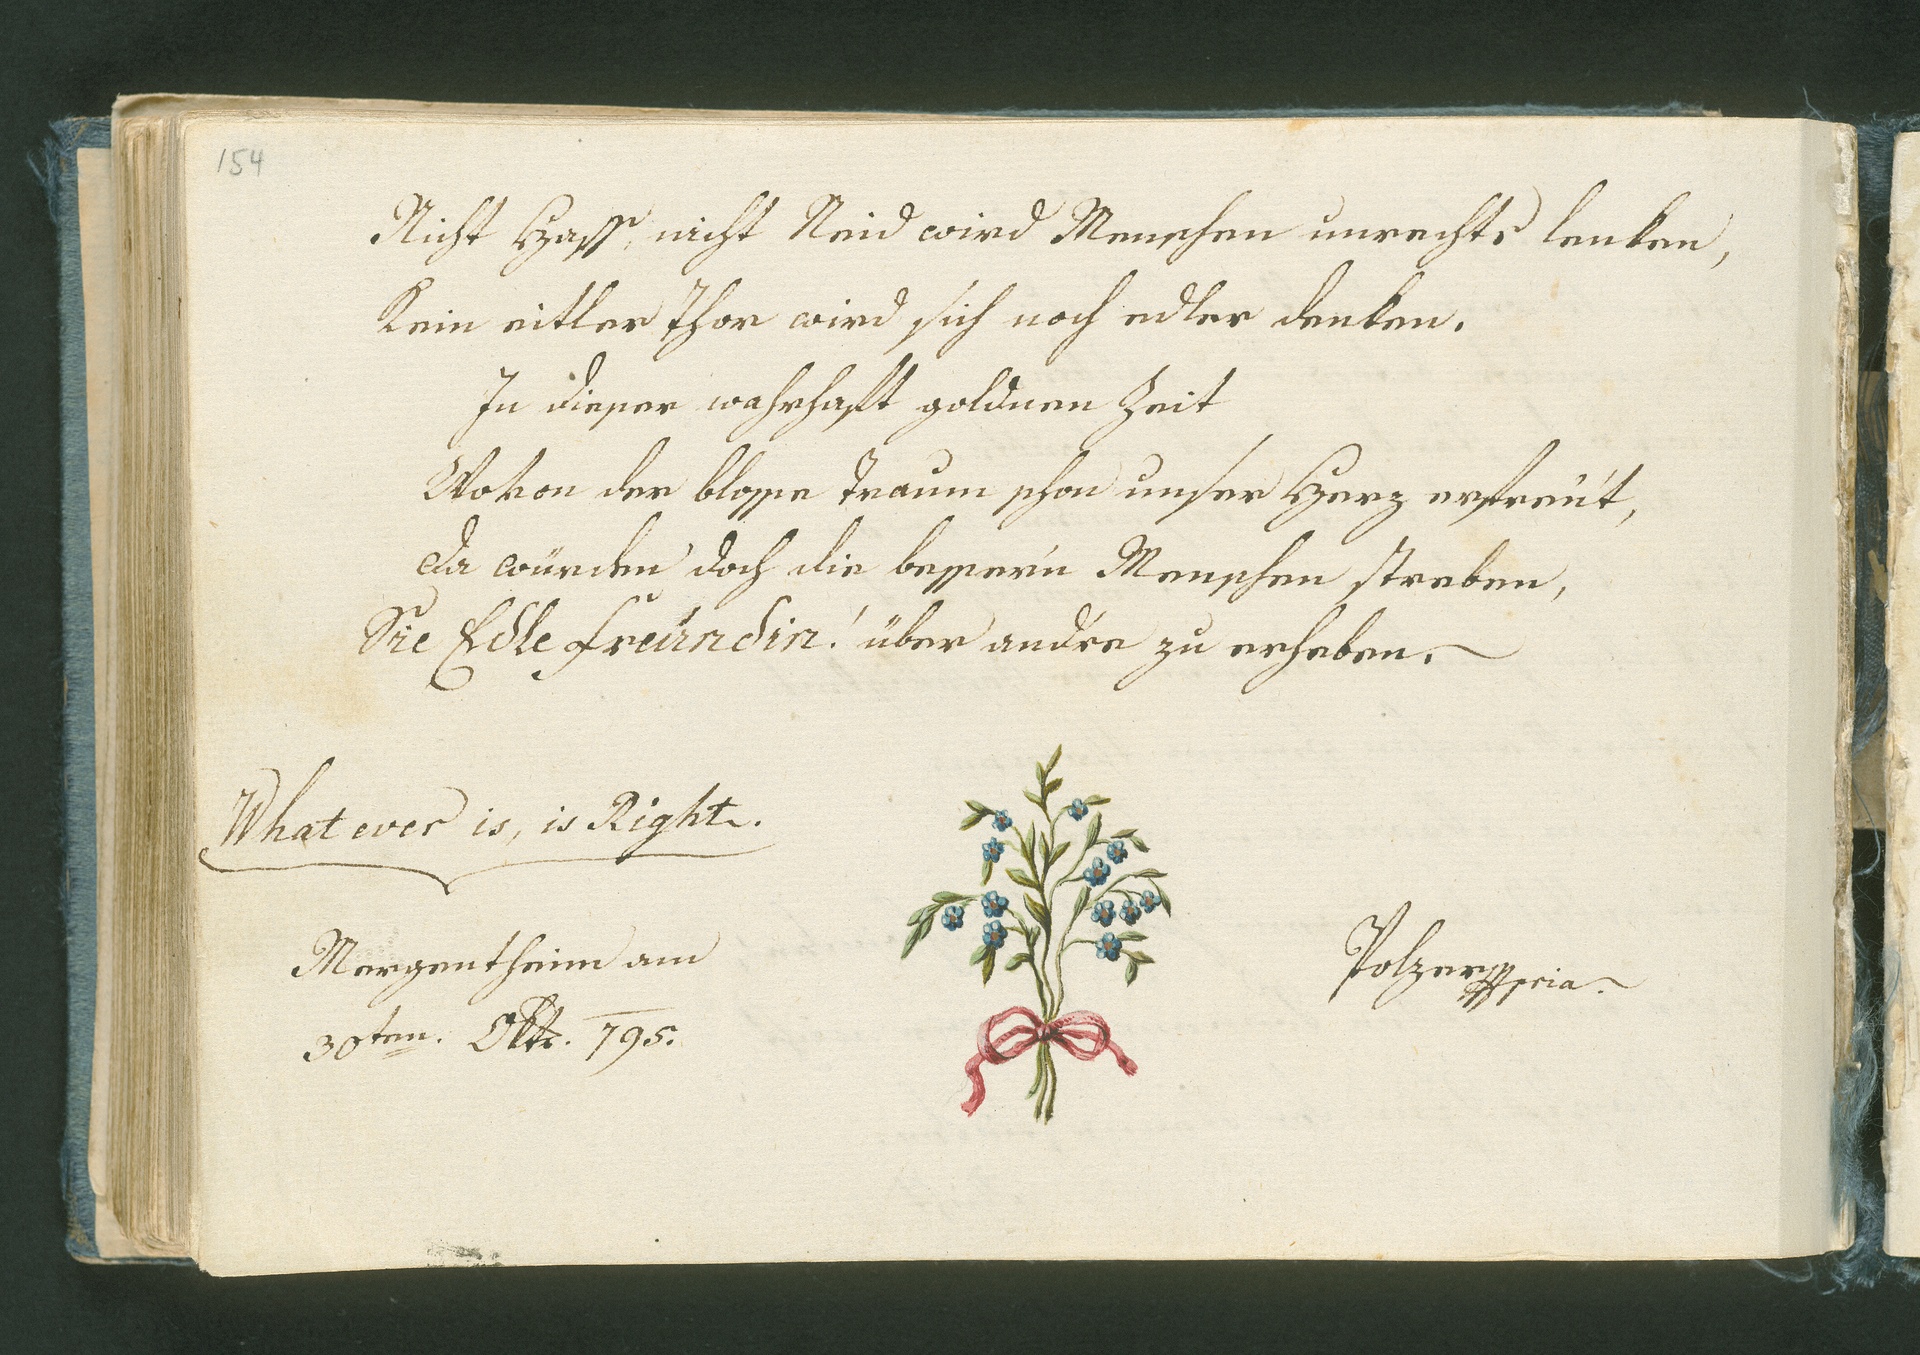 154
Nicht Hass, nicht Neid wird Menschen unrechts lenken,
Kein eitler Thor wird sich noch edler denken.
In dieser wahrhafft goldnen Zeit
Wovon der blosse Traum schon unser Herz erfreut,
Da würden doch die bessern Menschen streben,
Sie Edle Freundin! über andre zu erheben.
What ever is, is Right.
Mergentheim am
30ten. Oktr. 795.
Polzer